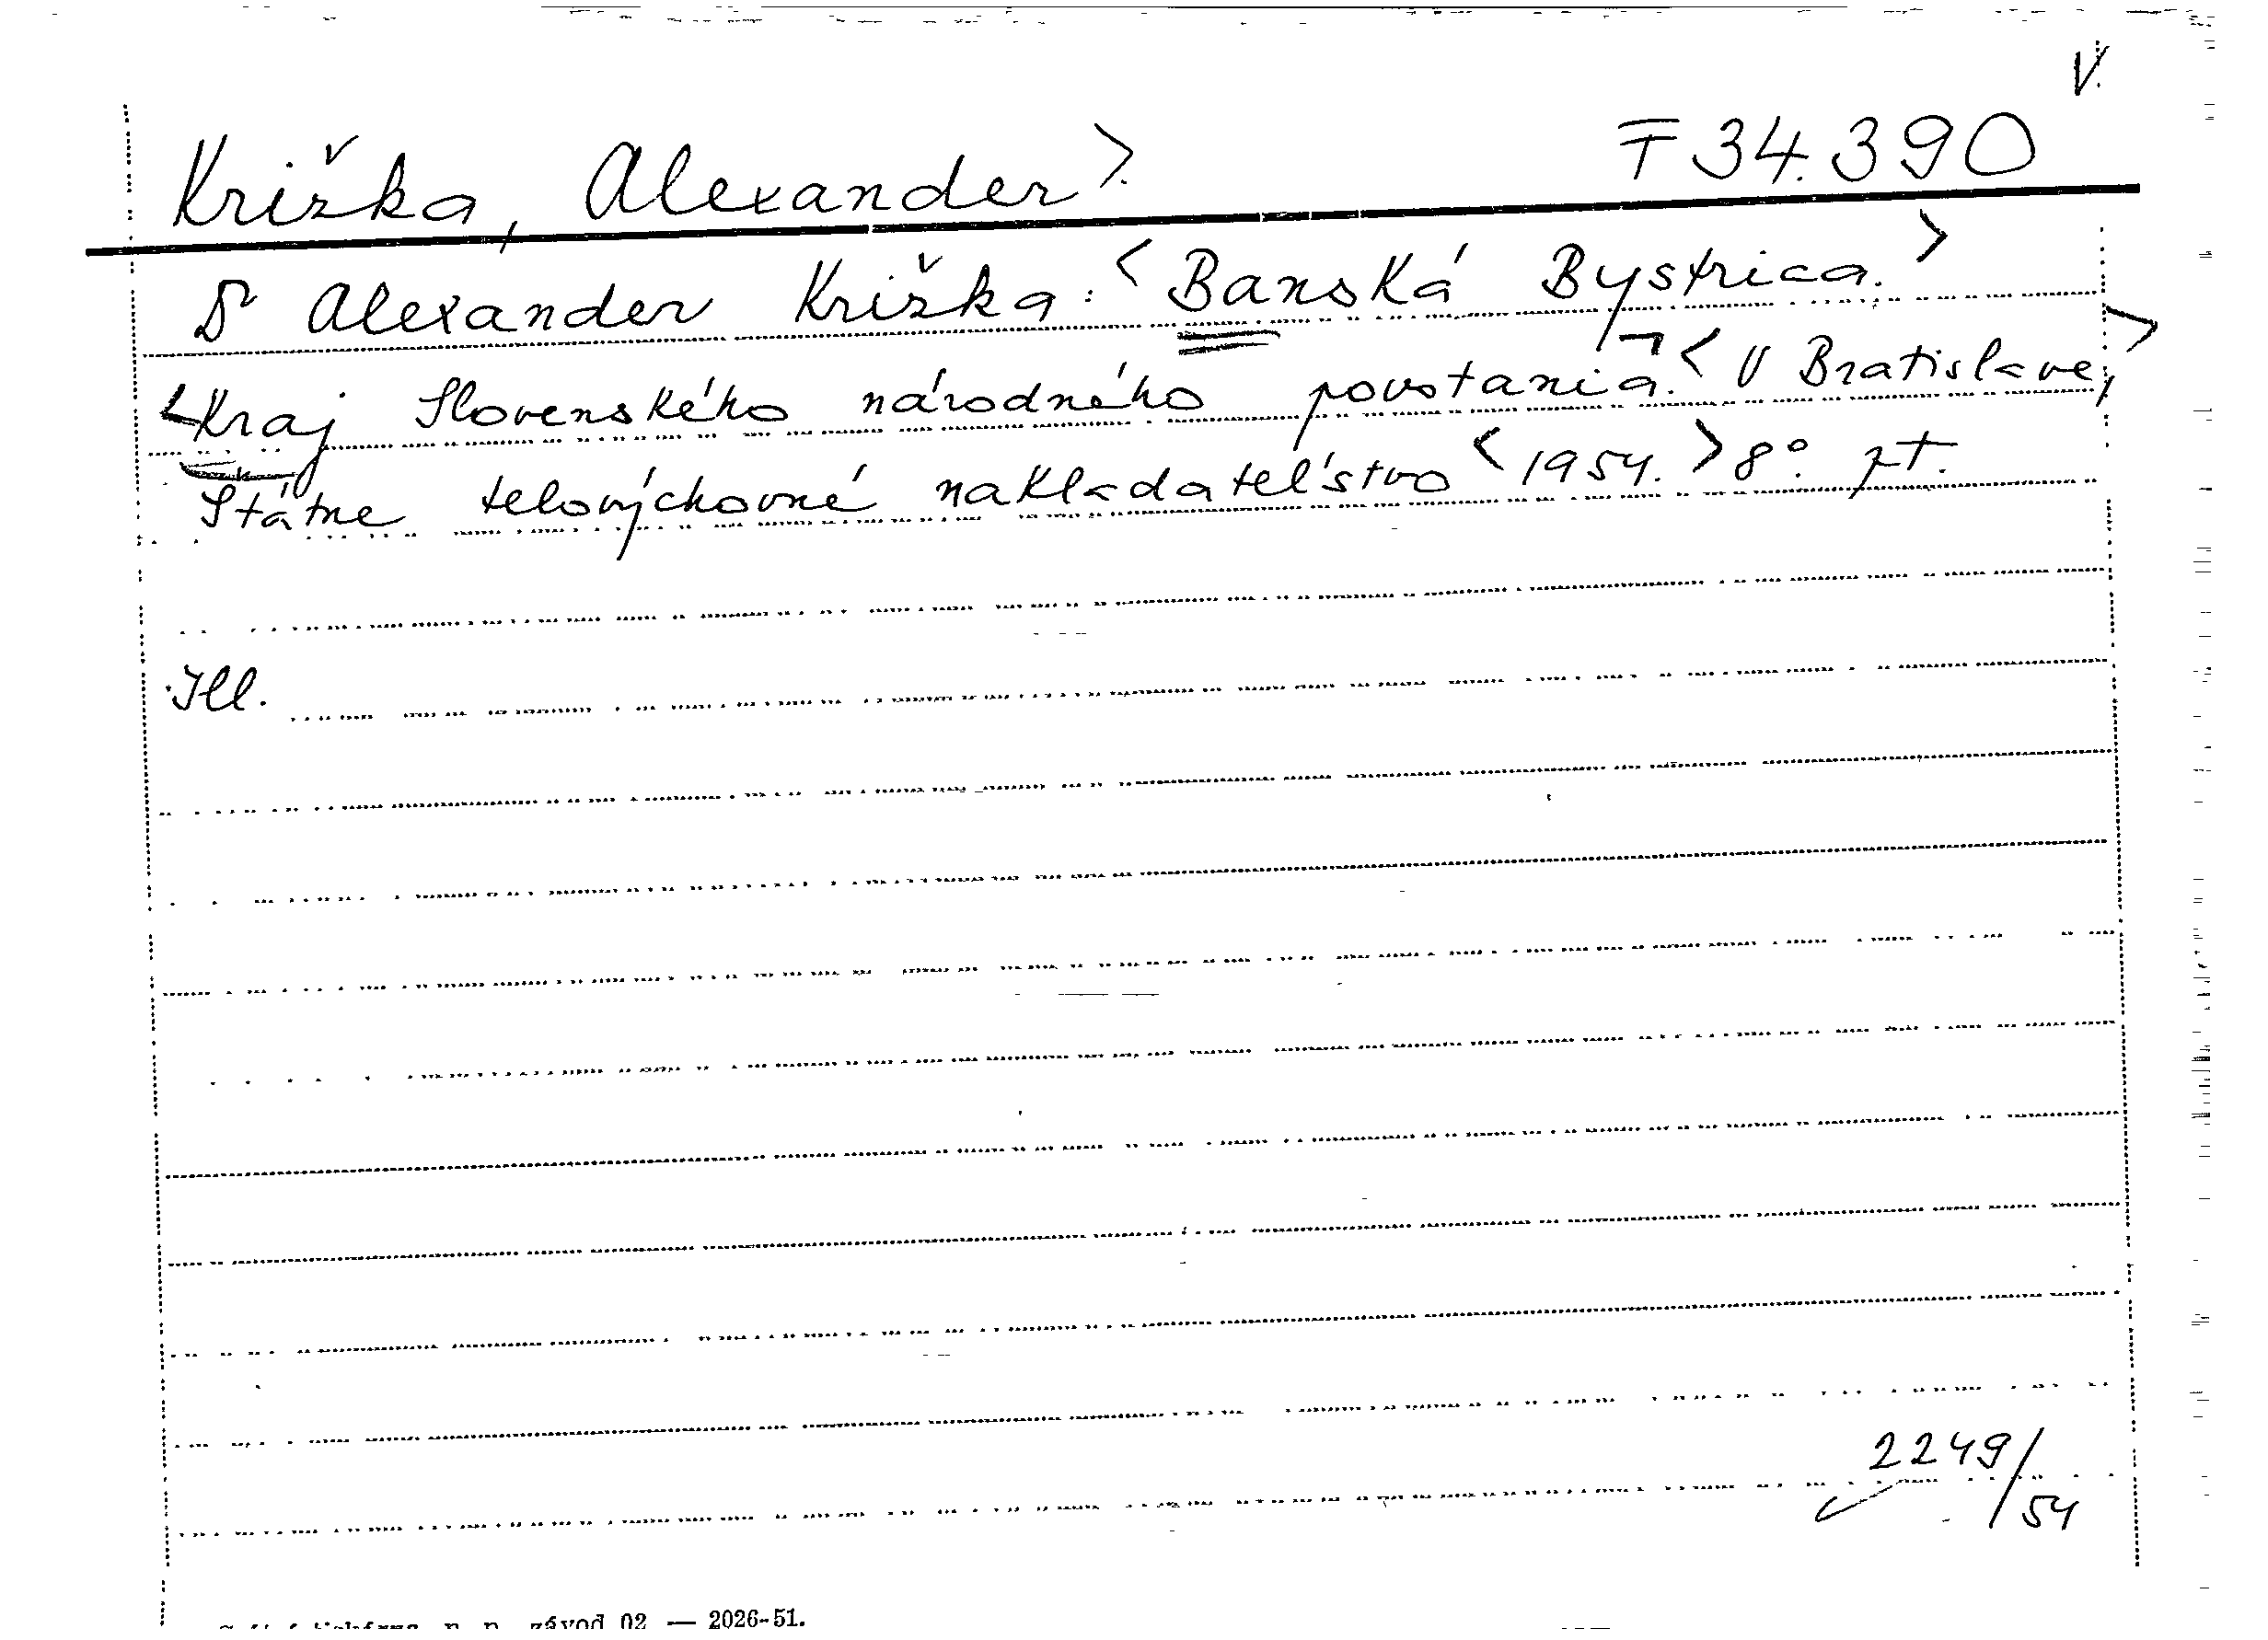 V.
Križka, Alexander>. F 34.390
Dr Alexander Križka: <Banská Bystrica.>
<Kraj Slovenského národného povstania.¬ <V Bratislave,>
Štátne telovýchovné nakladateľstvo <1954.> 8°. zt.
Ill.
2249/
54
n. p. závod 02 — 2026-51.